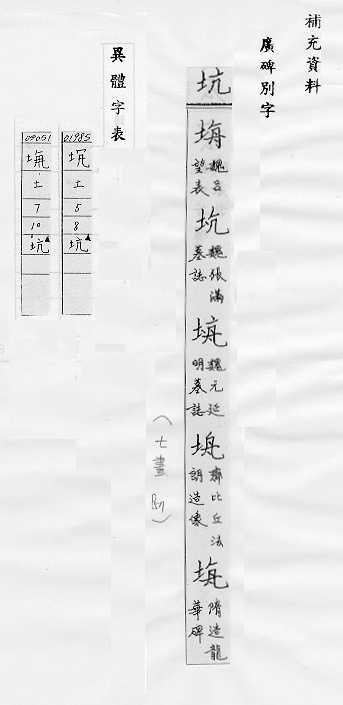 補充資料
廣碑別字
坑
魏呂望表
坑
魏張滿墓誌
魏元延明墓誌
齊比丘法朗造像
隋造龍華碑
(七畫內)
異體字表
01985
土
5
8
坑▲
09051
土
7
10
坑▲